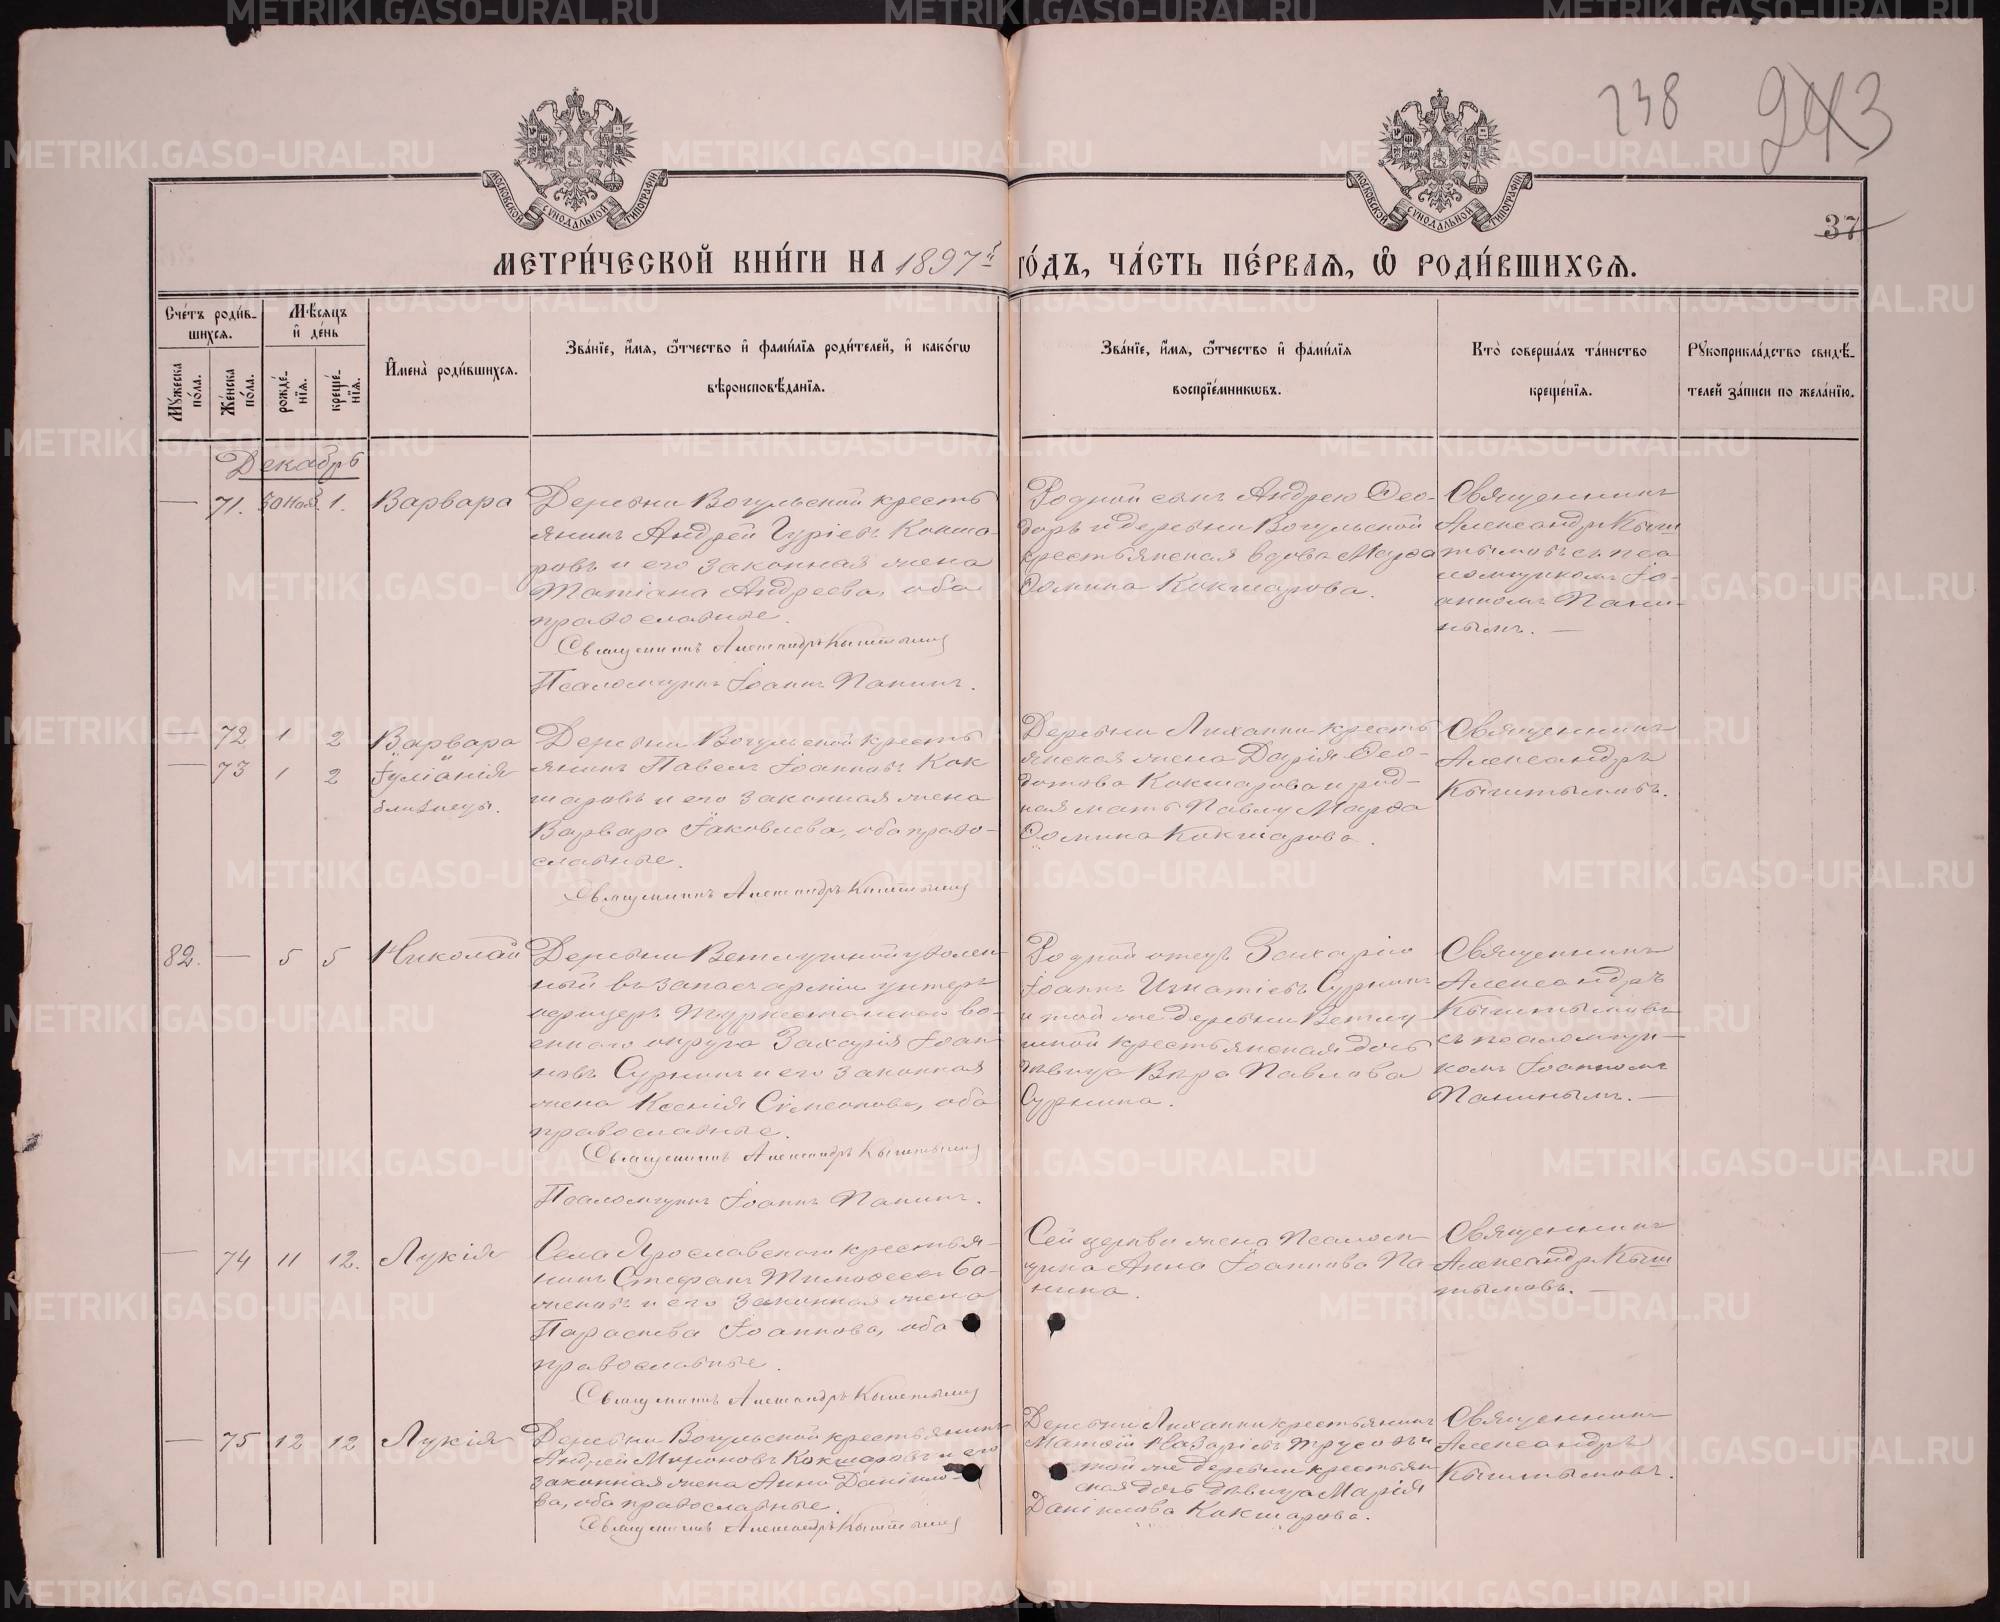 238 243
37
МОСКОВСКОЙ СѴНОДАЛЬНОЙ ТИПОГРАФИИ
МОСКОВСКОЙ СѴНОДАЛЬНОЙ ТИПОГРАФИИ
МЕТРИ́ЧЕСКОЙ КНИ́ГИ НА 1897й ГО́ДЪ, ЧА́СТЬ ПЕ́РВАЯ, Ѡ РОДИ́ВШИХСЯ.
Сче́тъ роди́в-
шихся.
Мѣсяцъ
и де́нь
Мꙋ́жеска по́ла.
Же́нска по́ла.
рожде́нїя.
креще́нїя.
И҆мена̀ роди́вшихся.
Зва́нїе, и҆́мя, ѻ҆́тчество и҆ фами́лїя роди́телей, и҆ како́гѡ
вѣроисповѣ́данїя.
Зва́нїе, и҆́мя, ѻ҆́тчество и҆ фами́лїя
воспрїе́мникѡвъ.
Кто̀ соверша́лъ та́инство
креще́нїя.
Рꙋкоприкла́дство свидѣ́-
телей за́писи по жела́нїю.
Декабрь
— 71. 30 Нояб. 1. Варвара
Деревни Вогульской кресть
янинъ Андрей Гуріевъ Кокша-
ровъ и его законная жена
Татіана Андреева, оба
православные.
Священникъ Александръ Кыштымовъ
Псаломщикъ Іоаннъ Панинъ.
Родной сынъ Андрею Ѳео-
доръ и деревни Вогульской
крестьянская вдова Марѳа
Ѳомина Кокшарова.
Священникъ
Александръ Кыш
тымовъ съ пса-
ломщикомъ Іо-
анномъ Пани-
нымъ. —
— 72 1 2 Варвара
— 73 1 2 Іуліанія
близнецы.
Деревни Вогульской кресть
янинъ Павелъ Іоанновъ Кок
шаровъ и его законная жена
Варвара Іаковлева, оба право-
славные.
Священникъ Александръ Кыштымовъ
Деревни Лиханки кресть
янская жена Дарія Ѳео-
дотова Кокшарова и род-
ная мать Павлу Марѳа
Ѳомина Кокшарова.
Священникъ
Александръ
Кыштымовъ.
82. — 5 5 Николай
Деревни Ветлугиной уволен-
ный въ запасъ арміи унтеръ
офицеръ Туркестанскаго во-
еннаго округа Захарія Іоан
новъ Суркинъ и его законная
жена Ксенія Симеонова, оба
православные.
Священникъ Александръ Кыштымовъ
Псаломщикъ Іоаннъ Панинъ.
Родной отецъ Захарію
Іоаннъ Игнатіевъ Суркинъ
и той же деревни Ветлу
гиной крестьянская дочь
дѣвица Вѣра Павлова
Суркина.
Священникъ
Александръ
Кыштымовъ
съ псаломщи-
комъ Іоанномъ
Панинымъ. —
— 74 11 12. Лукія
Села Ярославскаго крестья-
нинъ Стефанъ Тимоѳеевъ Ба-
женовъ и его законная жена
Параскева Іоаннова, оба
православные.
Священникъ Александръ Кыштымовъ
Сей церкви жена Псалом-
щика Анна Іоаннова Па-
нина.
Священникъ
Александръ Кыш
тымовъ. —
— 75 12 12 Лукія
Деревни Вогульской крестьянинъ
Андрей Мироновъ Кокшаровъ и его
законная жена Анна Даніило-
ва, оба православные.
Священникъ Александръ Кыштымовъ
Деревни Лиханки крестьянинъ
Матѳій Назаріевъ Трусовъ и
той же деревни крестьян
ская дочь дѣвица Марія
Даніилова Кокшарова.
Священникъ
Александръ
Кыштымовъ.
METRIKI.GASO-URAL.RU